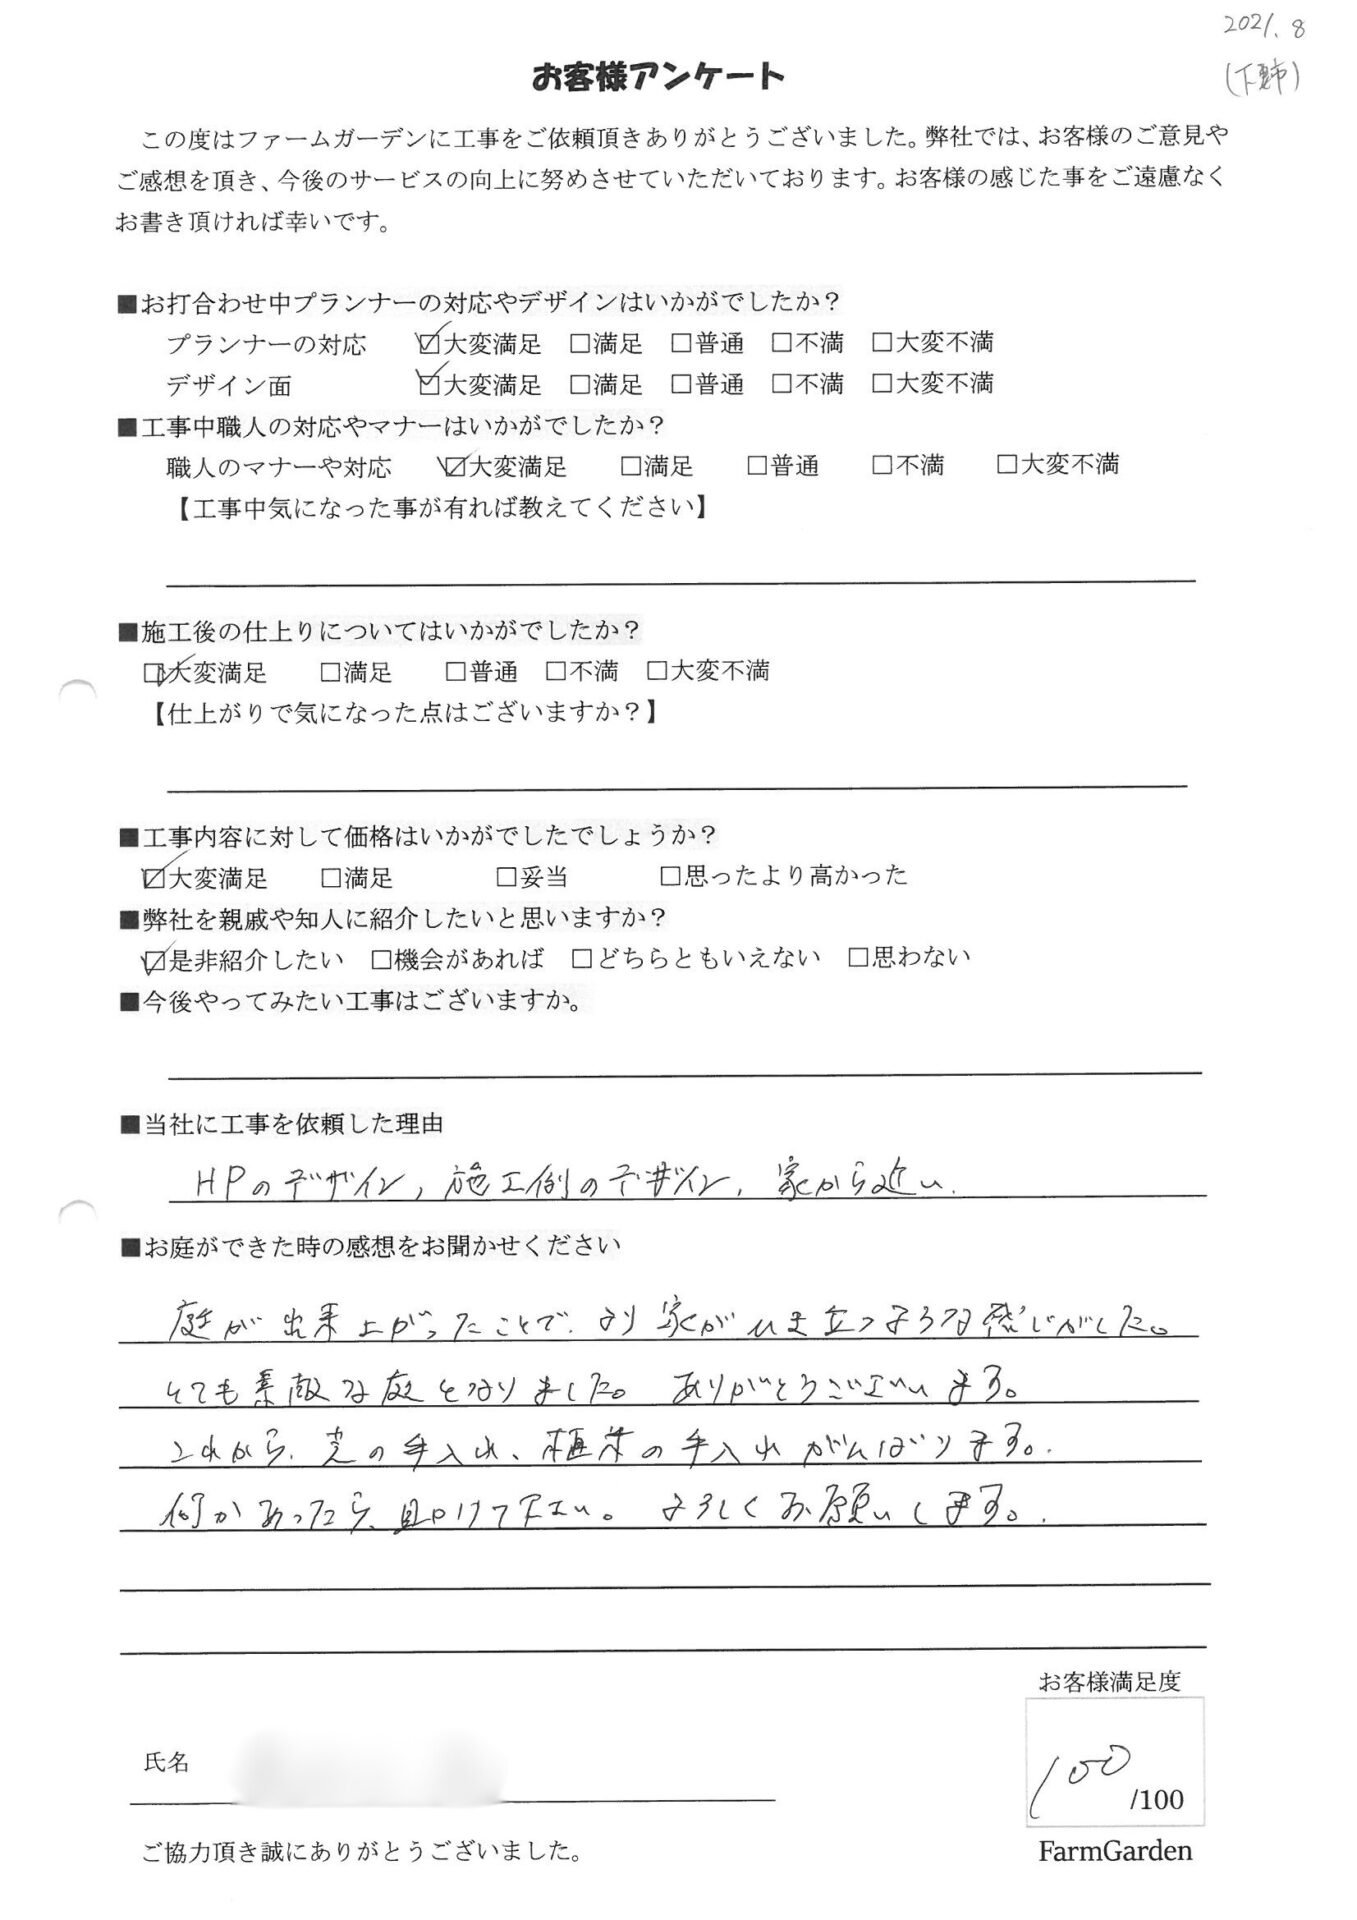 2021.8
お客様アンケート
この度はファームガーデンに工事をご依頼頂きありがとうございました。弊社では、お客様のご意見や
ご感想を頂き、今後のサービスの向上に努めさせていただいております。お客様の感じた事をご遠慮なく
お書き頂ければ幸いです。
■お打合わせ中プランナーの対応やデザインはいかがでしたか？
プランナーの対応 ☑大変満足 □満足 □普通 □不満 □大変不満
デザイン面 ☑大変満足 □満足 □普通 □不満 □大変不満
■工事中職人の対応やマナーはいかがでしたか？
職人のマナーや対応 ☑大変満足 □満足 □普通 □不満 □大変不満
【工事中気になった事が有れば教えてください】
■施工後の仕上りについてはいかがでしたか？
☑大変満足 □満足 □普通 □不満 □大変不満
【仕上がりで気になった点はございますか？】
■工事内容に対して価格はいかがでしたでしょうか？
☑大変満足 □満足 □妥当 □思ったより高かった
■弊社を親戚や知人に紹介したいと思いますか？
☑是非紹介したい □機会があれば □どちらともいえない □思わない
■今後やってみたい工事はございますか。
■当社に工事を依頼した理由
HPのデザイン, 施工例のデザイン, 家から近い.
■お庭ができた時の感想をお聞かせください
庭が出来上がったことで、より家がひき立つような感じがした。
とても素敵な庭となりました。ありがとうございます。
これから、芝の手入れ、植木の手入れがんばります。
何かあったら、助けて下さい。よろしくお願いします。
お客様満足度
100
/100
氏名
FarmGarden
ご協力頂き誠にありがとうございました。